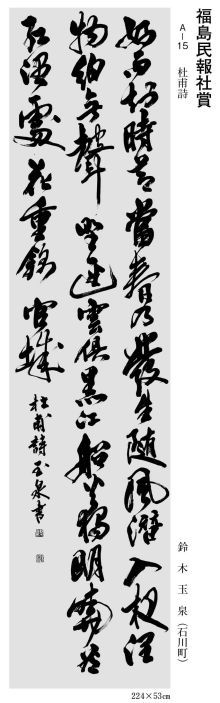 福島民報社賞
A-15　杜甫詩
鈴木玉泉（石川町）
好雨知時節當春乃發生随風潜入夜潤
物細無聲野径雲俱黒江船火獨明暁看
紅湿處花重錦官城　杜甫詩玉泉書
224×53cm